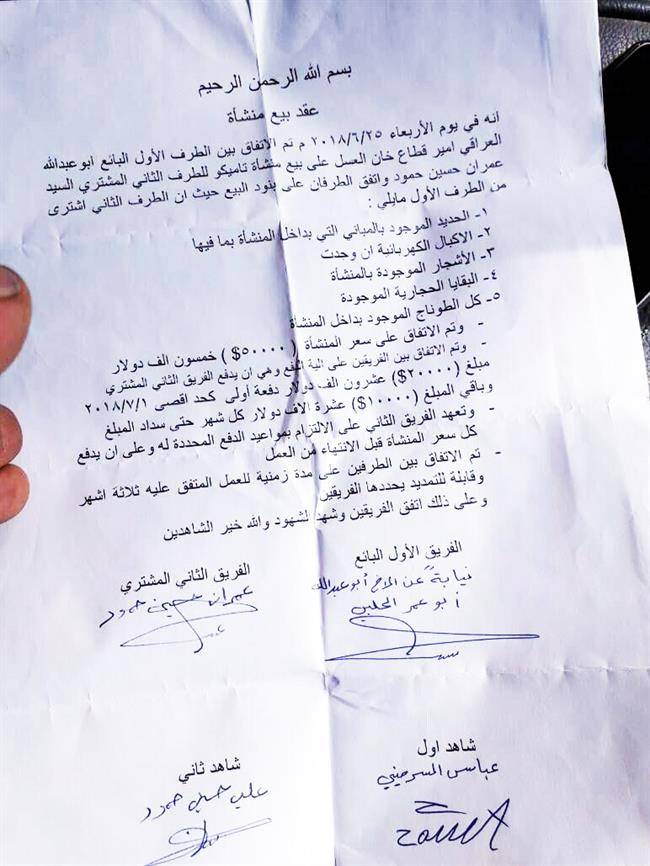 بسم الله الرحمن الرحيم
عقد بيع منشأة
انه في يوم الأربعاء ٢٠١٨/٦/٢٥ م تم الاتفاق بين الطرف الأول البائع ابو عبدالله
العراقي امير قطاع خان العسل على بيع منشأة تاميكو للطرف الثاني المشتري السيد
عمران حسين حمود واتفق الطرفان على بنود البيع حيث ان الطرف الثاني اشترى
من الطرف الأول مايلي :
١- الحديد الموجود بالمباني التي بداخل المنشأة بما فيها
٢- الاكبال الكهربائية ان وجدت
٣- الأشجار الموجودة بالمنشأة
٤- البقايا الحجارية الموجودة
٥- كل الطوناج الموجود بداخل المنشأة
- وتم الاتفاق على سعر المنشأة ( ٥٠٠٠٠$ ) خمسون الف دولار
- وتم الاتفاق بين الفريقين على الية الدفع وهي ان يدفع الفريق الثاني المشتري
مبلغ (٢٠٠٠٠$) عشرون الف دولار دفعة أولى كحد اقصى ٢٠١٨/٧/١
وباقي المبلغ (١٠٠٠٠$) عشرة الاف دولار كل شهر حتى سداد المبلغ
- وتعهد الفريق الثاني على الالتزام بمواعيد الدفع المحددة له وعلى ان يدفع
كل سعر المنشأة قبل الانتهاء من العمل
- تم الاتفاق بين الطرفين على مدة زمنية للعمل المتفق عليه ثلاثة اشهر
وقابلة للتمديد يحددها الفريقين
وعلى ذلك اتفق الفريقين وشهد الشهود والله خير الشاهدين
الفريق الأول البائع
نيابة عن الاخ أبو عبدالله
أبو عمر الحلبي
الفريق الثاني المشتري
عمران حسين حمود
شاهد اول
عباس السرميني
شاهد ثاني
علي حسين حمود